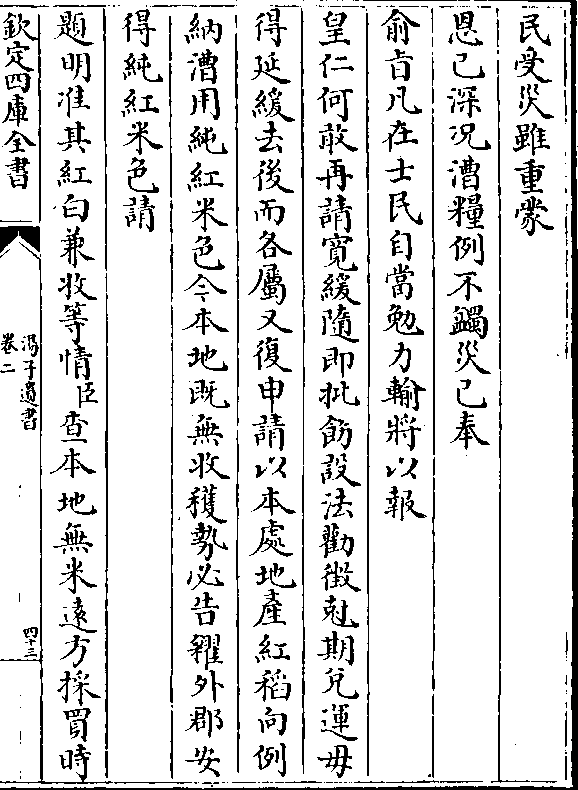 民受災雖重蒙
恩已深况漕糧例不蠲災已奉
俞㫖凡在士民自當勉力輸將以報
皇仁何敢再請寛緩隨即批飭設法勸徴尅期兌運毋
得延緩去後而各屬又復申請以本處地產紅稻向例
納漕用純紅米色今本地既無收穫勢必告糴外郡安
得純紅米色請
題明准其紅白兼收等情臣查本地無米遠方採買時
欽定四庫全書
湯子遺書
卷二
四十三